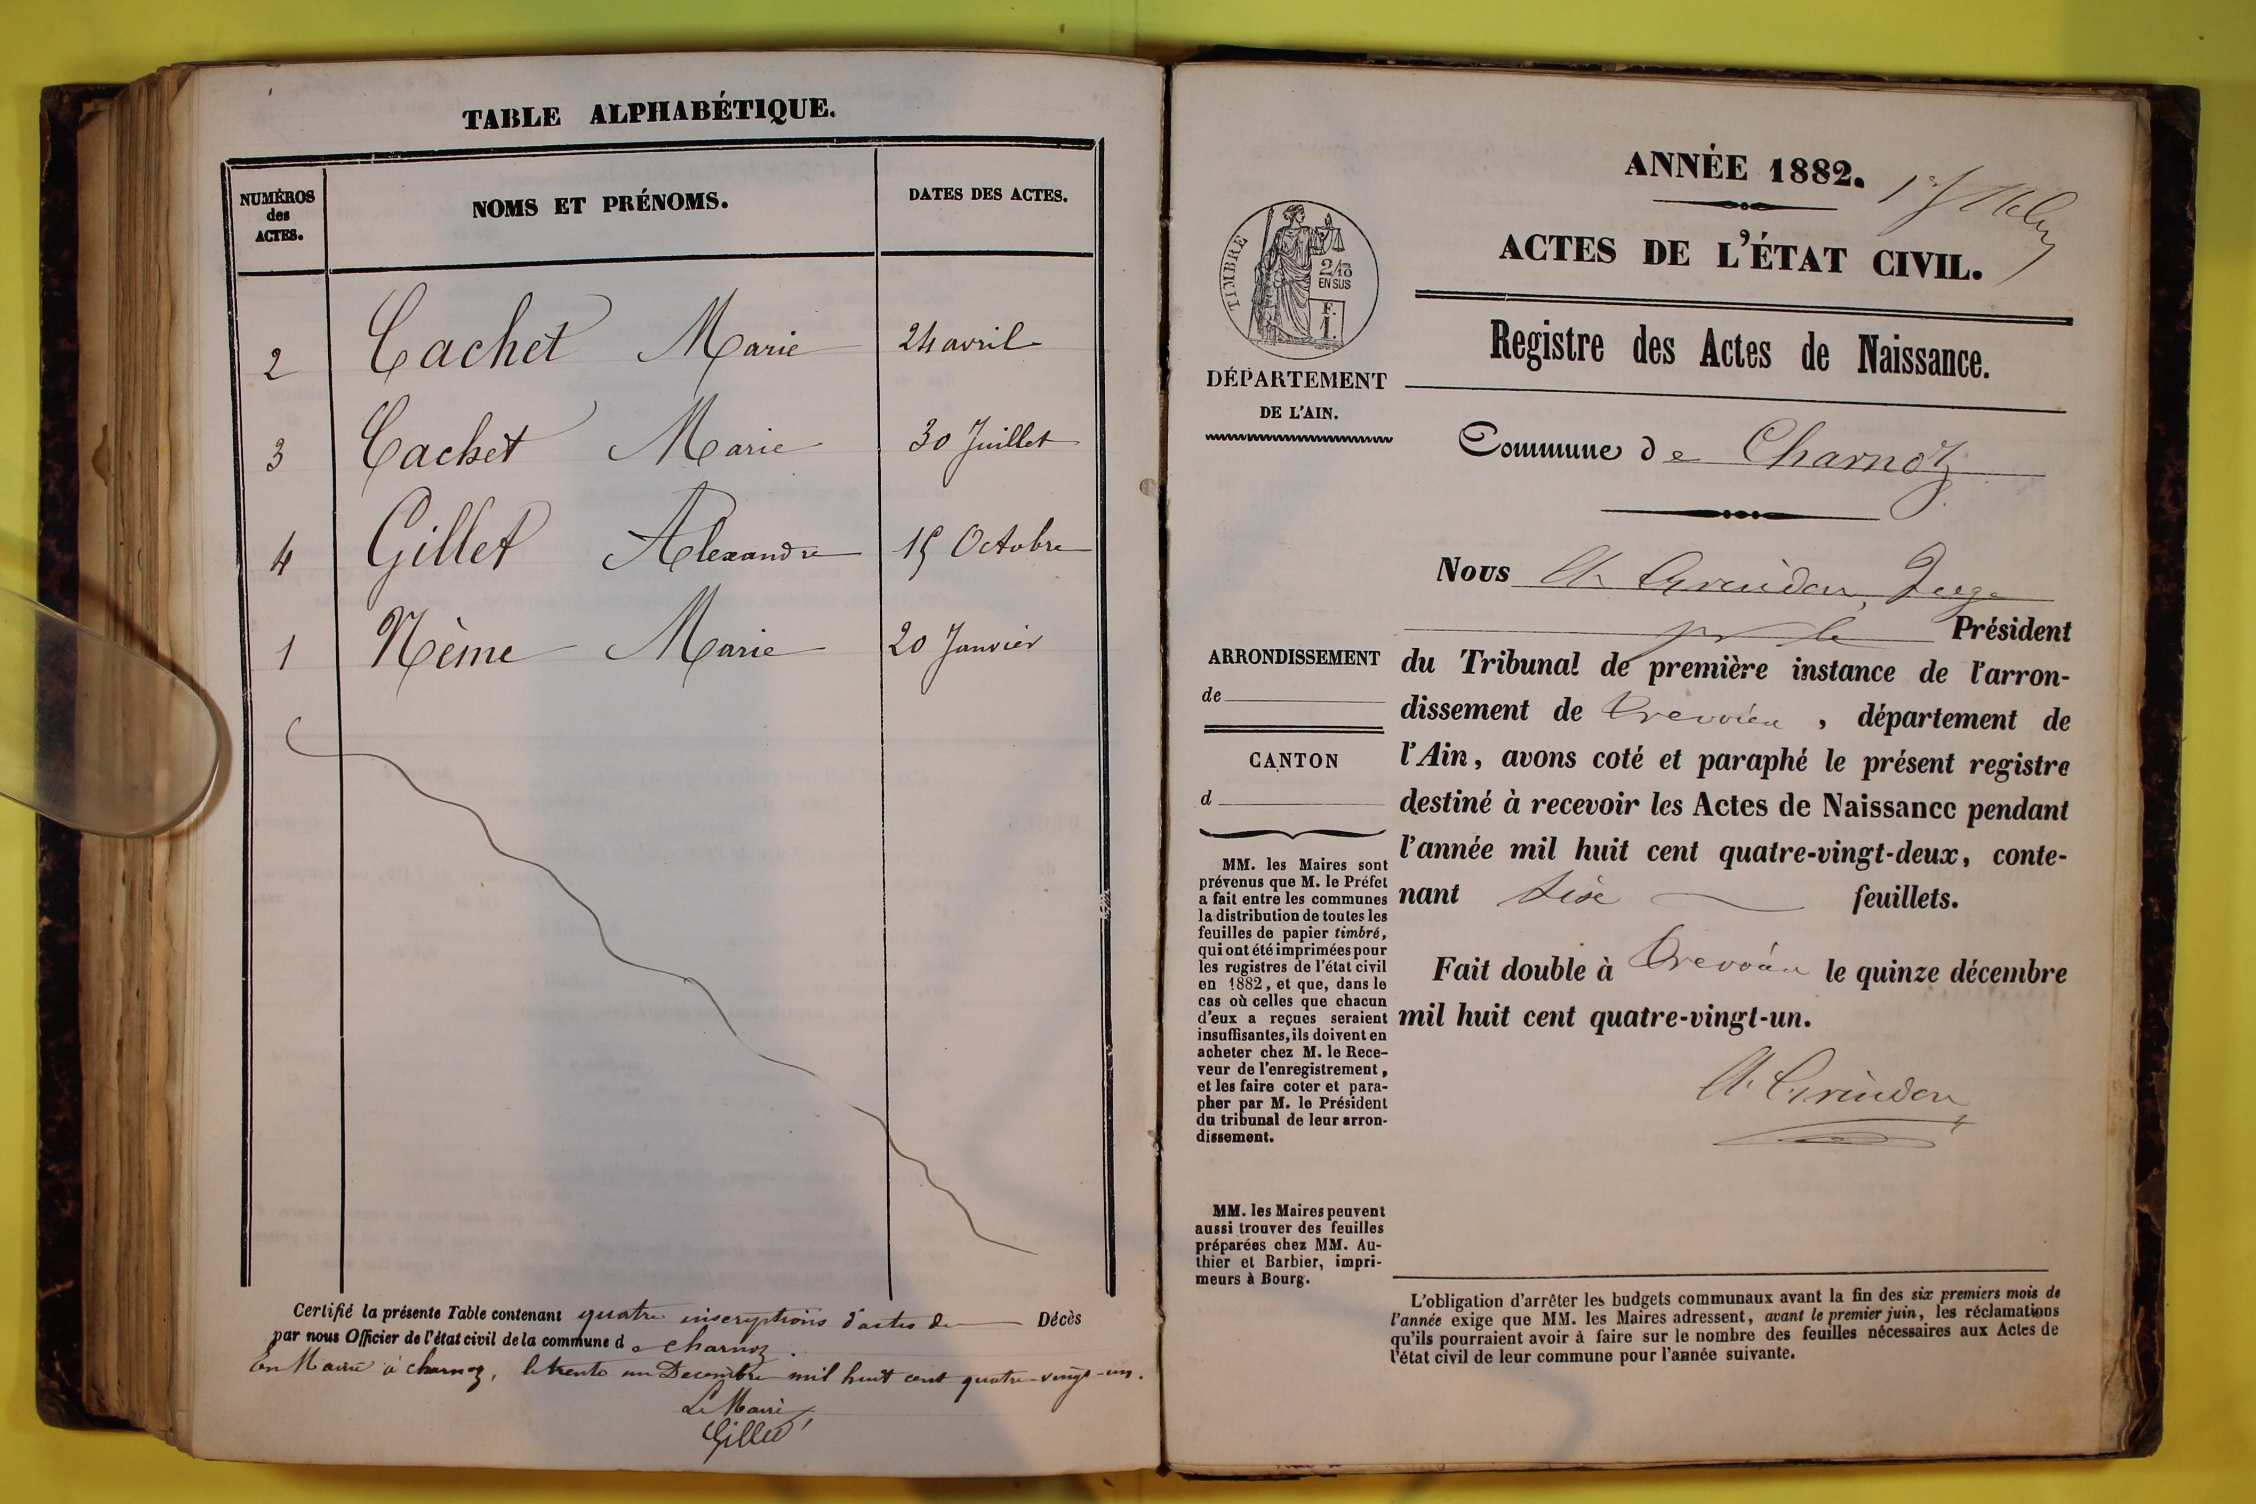 TABLE ALPHABÉTIQUE.
NUMÉROS
des
ACTES.
NOMS ET PRÉNOMS.
DATES DES ACTES.
2 Cachet Marie 24 avril
3 Cachet Marie 30 Juillet
4 Gillet Alexandre 15 Octobre
1 Nème Marie 20 Janvier
Certifié la présente Table contenant quatre inscriptions d'actes de Décès
par nous Officier de l'état civil de la commune de charnoz.
En Mairie à charnoz, le trente un Decembre mil huit cent quatre-vingt-un.
Le Maire
Gillet
ANNÉE 1882.
ACTES DE L'ÉTAT CIVIL.
TIMBRE
2/10
EN SUS
F.
1.
Registre des Actes de Naissance.
DÉPARTEMENT
DE L'AIN.
Commune de Charnoz
Nous A. Grindon, Juge
pr le Président
du Tribunal de première instance de l'arron-
dissement de Trévoux, département de
l'Ain, avons coté et paraphé le présent registre
destiné à recevoir les Actes de Naissance pendant
l'année mil huit cent quatre-vingt-deux, conte-
nant six feuillets.
Fait double à Trévoux le quinze décembre
mil huit cent quatre-vingt-un.
A. Grindon
ARRONDISSEMENT
de
CANTON
d
MM. les Maires sont
prévenus que M. le Préfet
a fait entre les communes
la distribution de toutes les
feuilles de papier timbré,
qui ont été imprimées pour
les registres de l'état civil
en 1882, et que, dans le
cas où celles que chacun
d'eux a reçues seraient
insuffisantes, ils doivent en
acheter chez M. le Rece-
veur de l'enregistrement,
et les faire coter et para-
pher par M. le Président
du tribunal de leur arron-
dissement.
MM. les Maires peuvent
aussi trouver des feuilles
préparées chez MM. Au-
thier et Barbier, impri-
meurs à Bourg.
L'obligation d'arrêter les budgets communaux avant la fin des six premiers mois de
l'année exige que MM. les Maires adressent, avant le premier juin, les réclamations
qu'ils pourraient avoir à faire sur le nombre des feuilles nécessaires aux Actes de
l'état civil de leur commune pour l'année suivante.